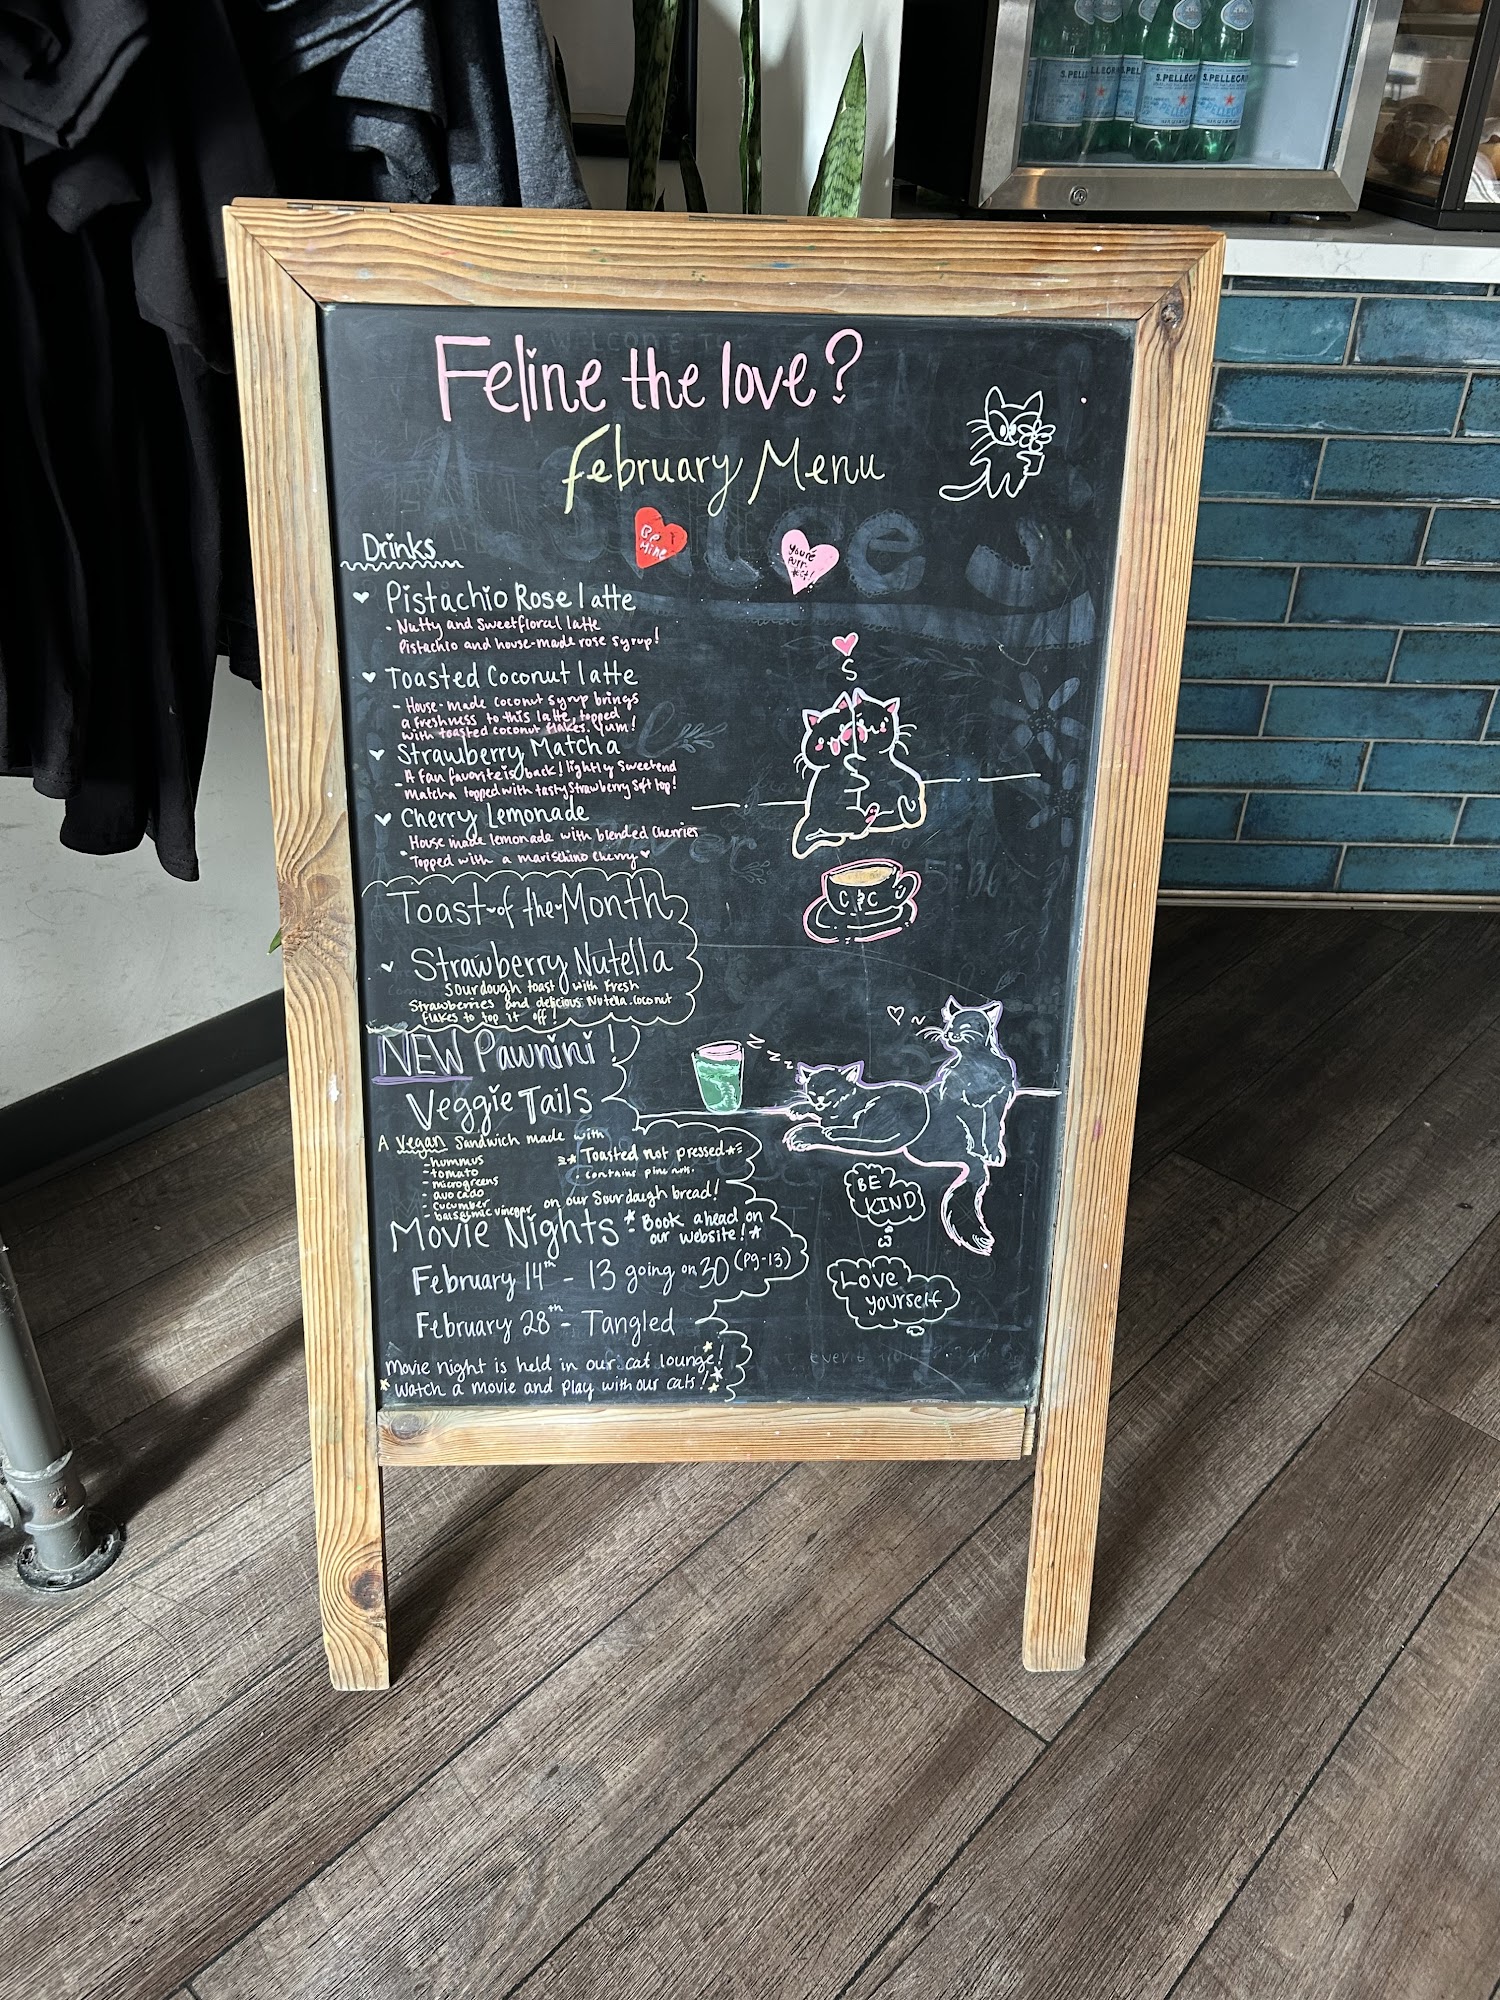 Feline the love?
February Menu
Be
Mine
You're
purr-
fect!
Drinks
Pistachio Rose latte
- Nutty and Sweet floral latte
Pistachio and house-made rose syrup!
Toasted Coconut latte
- House-made coconut syrup brings
a freshness to this latte, topped
with toasted coconut flakes. Yum!
Strawberry Matcha
- A fan favorite is back! lightly sweetend
Matcha topped with tasty strawberry soft top!
Cherry Lemonade
House made lemonade with blended cherries
Topped with a marischino cherry
Toast of the Month
Strawberry Nutella
Sourdough toast with fresh
Strawberries and delicious Nutella. coconut
flakes to top it off!
NEW Pawnini!
Veggie Tails
A Vegan Sandwich made with
- hummus
- tomato
- microgreens
- avocado
- cucumber
- balsamic vinegar
Toasted not pressed
contains pine nuts.
on our Sourdough bread!
Movie Nights
Book ahead on
our website!
February 14th - 13 going on 30 (PG-13)
February 28th - Tangled
Movie night is held in our cat lounge!
Watch a movie and play with our cats!
zzzz
BE
KIND
Love
yourself
S.PELLEGRINO
S.PELLEGRINO